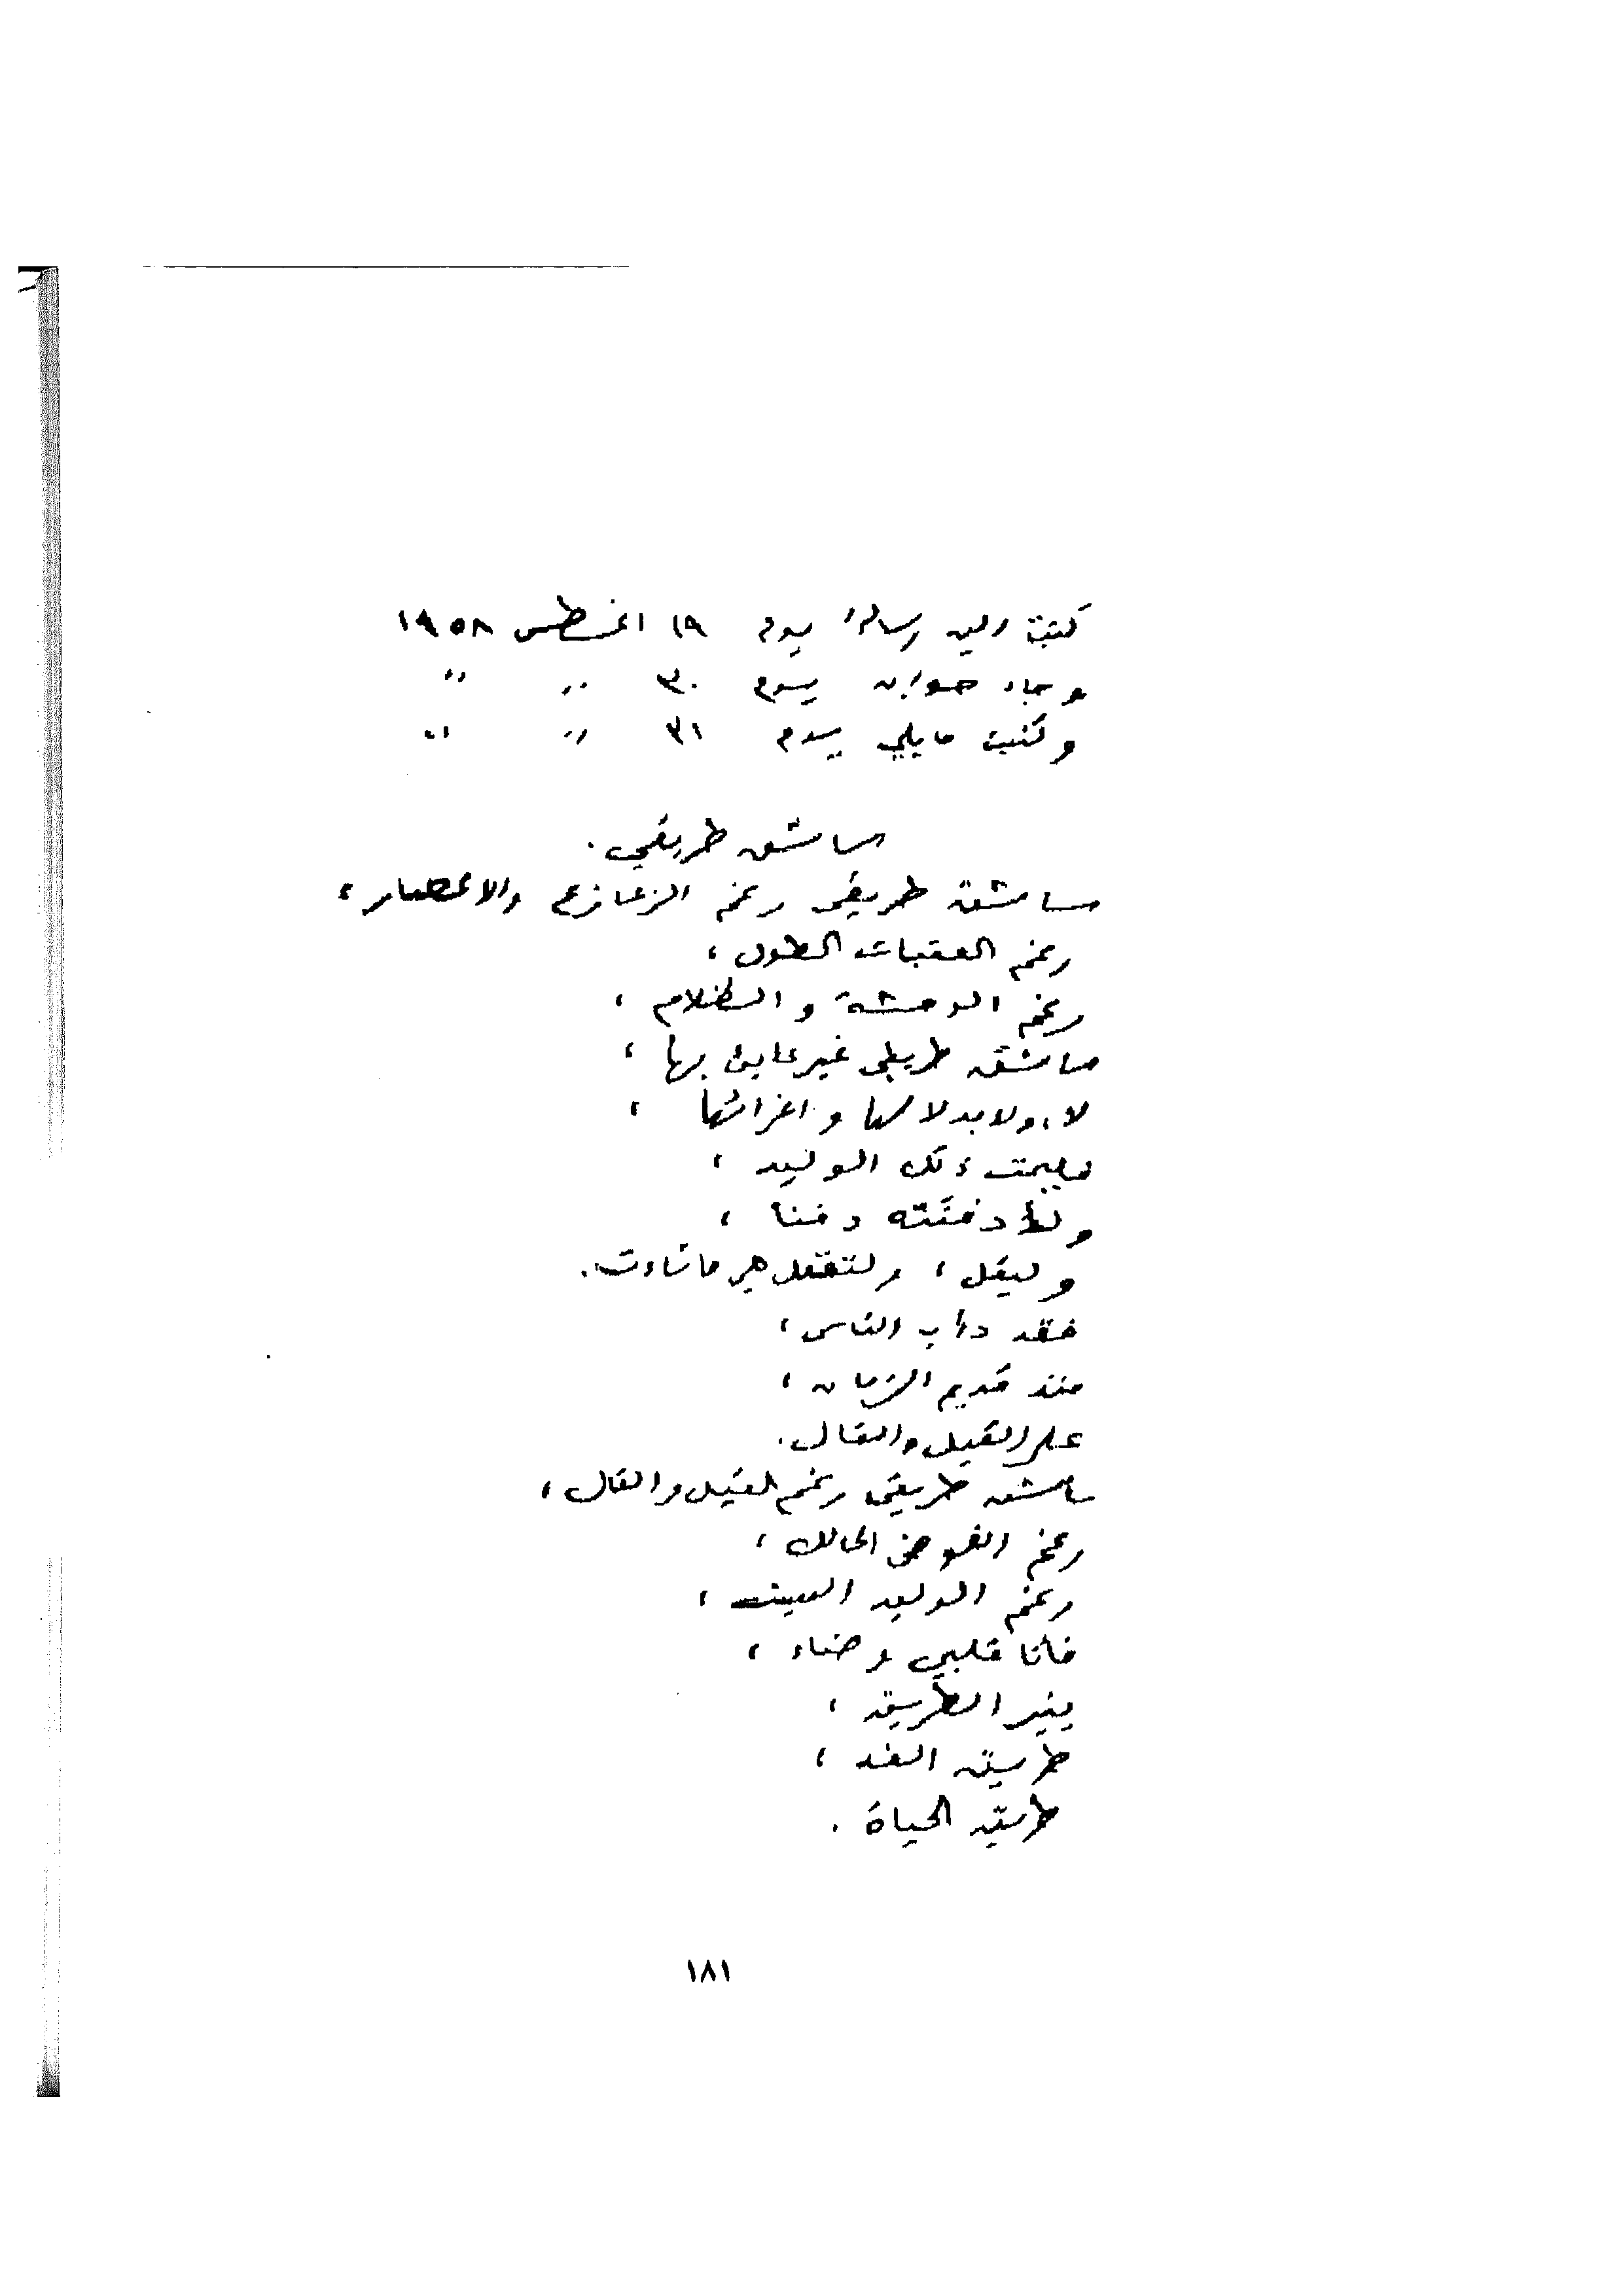 كتبت اليه رسالة يوم ١٩ اغسطس ١٩٥٨
وجاء جوابه يوم ٣٠ ,, ,,
وكتبت مايلي يوم ٣١ ,, ,,
سأشق طريقي.
سأشق طريقي رغم الزعازع والاعصار،
رغم العقبات الطول،
رغم الوحشة والظلام،
سأشق طريقي غير عابئ بها،
لا، ولا بدلالها واغرائها،
فليمت ذلك الوليد،
دفنته دفنا،
وليقل، ولتقل هي ما شاءت.
فقد دأب الناس،
منذ قديم الزمان،
على القيل والقال.
سأشق طريقي رغم القيل والقال،
رغم الغموض الحالك،
رغم الوليد الميت،
فأنا قلبي وضاء،
ينير الطريق،
طريق الغد،
طريق الحياة.
١٨١